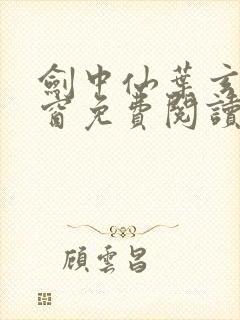 劍中仙葉玄
窗免費閱讀
顧雲昌